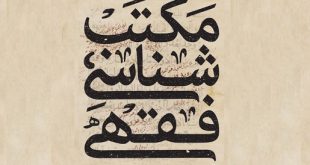 مکتب
شناسی
فقهی